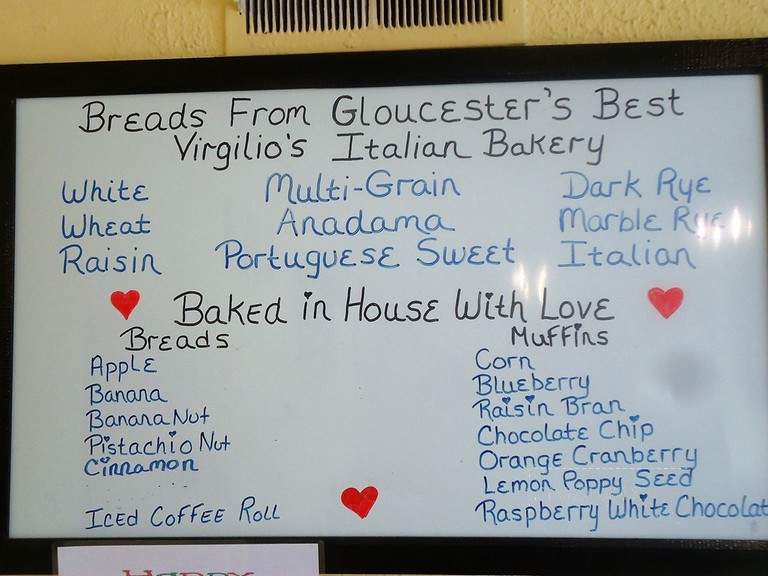 Breads From Gloucester's Best
Virgilio's Italian Bakery
White Multi-Grain Dark Rye
Wheat Anadama Marble Rye
Raisin Portuguese Sweet Italian
Baked in House With Love
Breads Muffins
Apple Corn
Banana Blueberry
Banana Nut Raisin Bran
Pistachio Nut Chocolate Chip
Cinnamon Orange Cranberry
Lemon Poppy Seed
Iced Coffee Roll Raspberry White Chocolat